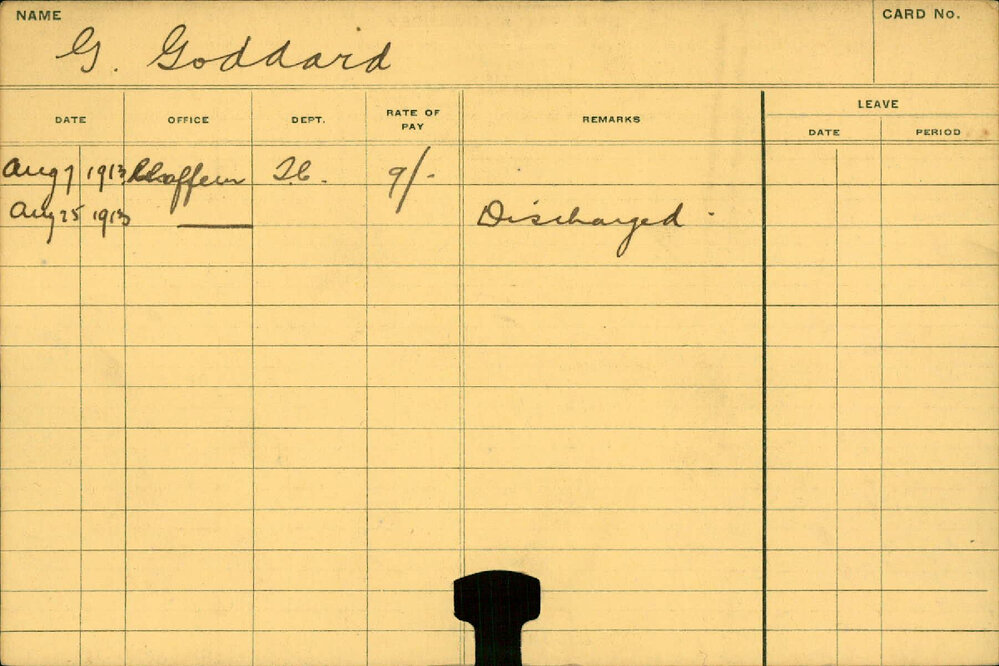 NAME
CARD No.
G. Goddard
DATE OFFICE DEPT. RATE OF PAY REMARKS LEAVE
DATE PERIOD
Aug 7 1913 Chaffeur 9/-
Aug 25 1913 Discharged